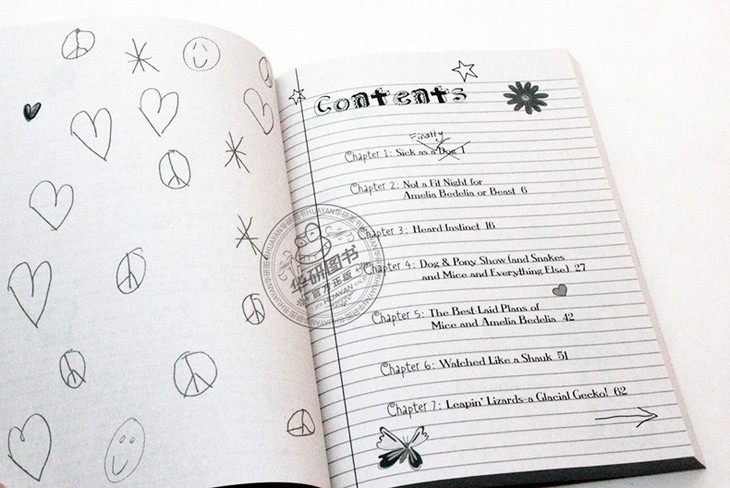 Contents
Finally
Chapter 1: Sick as a Dog 1
Chapter 2: Not a Fit Night for
Amelia Bedelia or Beast 6
Chapter 3: Heard Instinct 16
Chapter 4: Dog & Pony Show (and Snakes
and Mice and Everything Else) 27
Chapter 5: The Best-Laid Plans of
Mice and Amelia Bedelia 42
Chapter 6: Watched Like a Shauk 51
Chapter 7: Leapin' Lizards-a Glacial Gecko! 62
华研图书
官方正版
HUAYAN